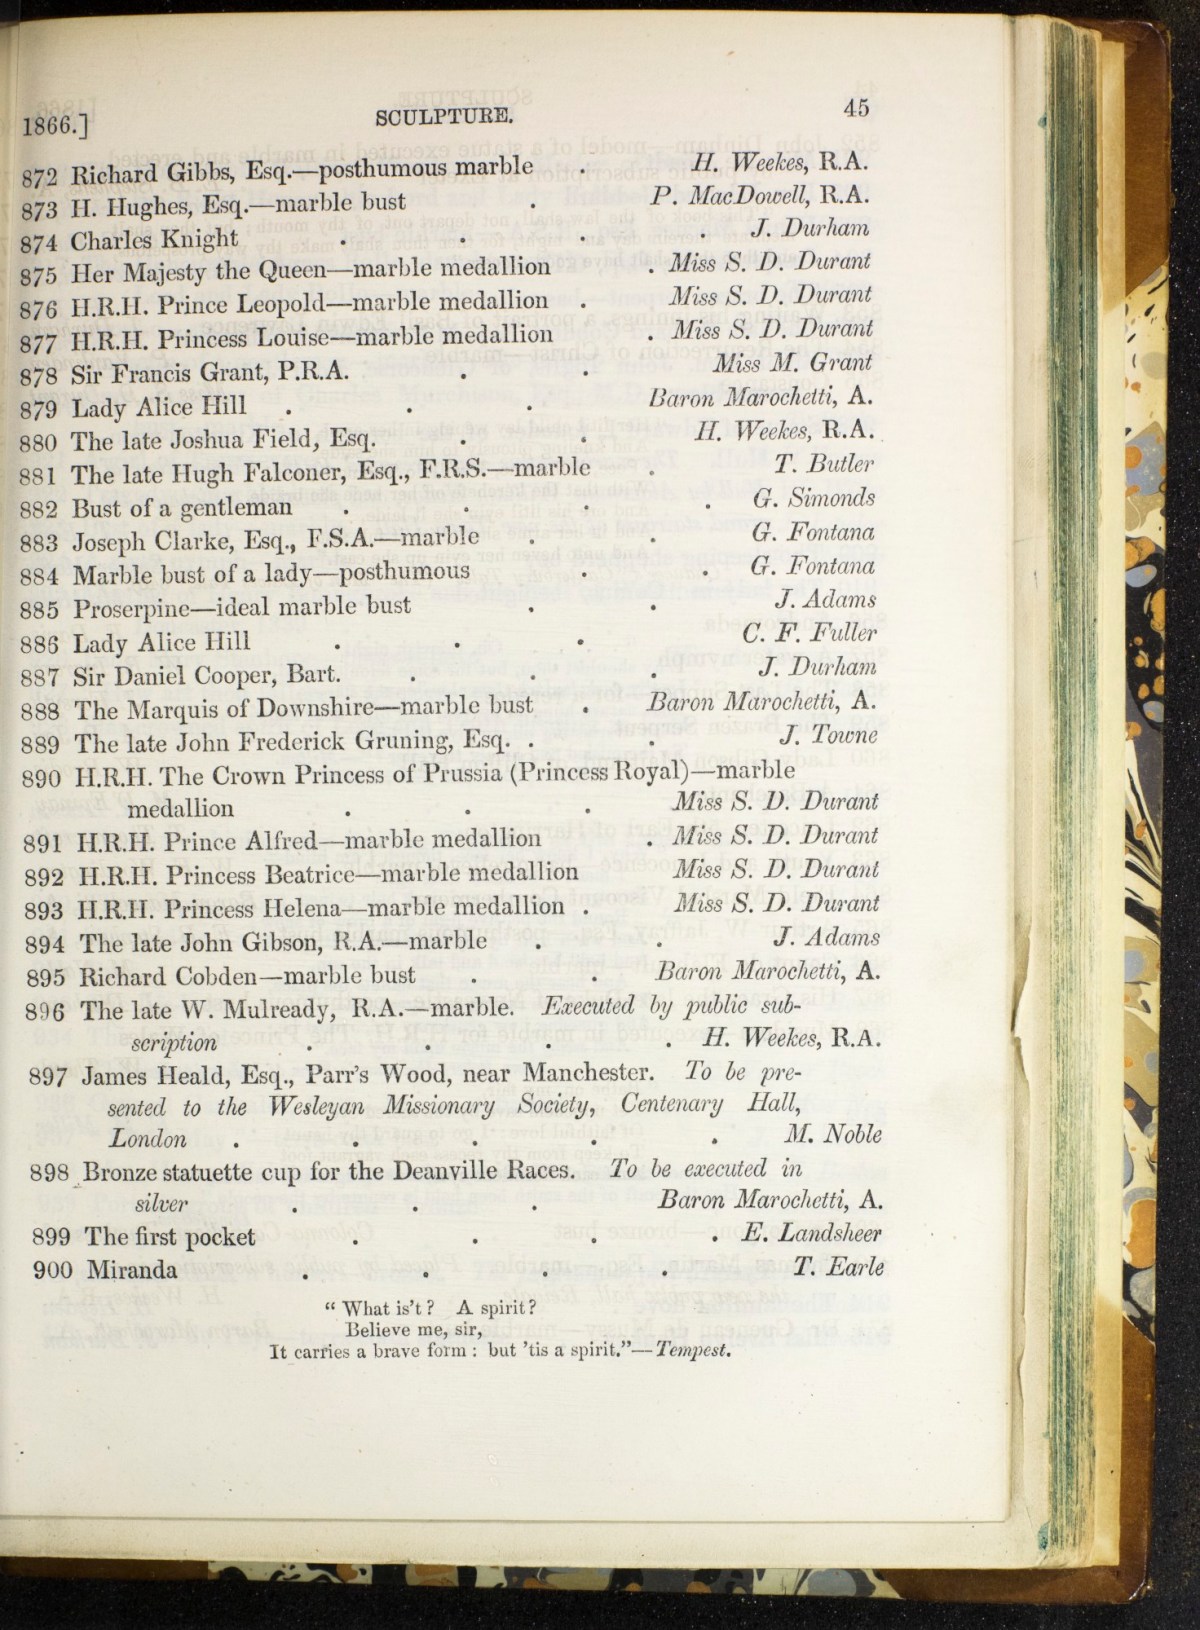 1866.] SCULPTURE. 45
872 Richard Gibbs, Esq.—posthumous marble . H. Weekes, R.A.
873 H. Hughes, Esq.—marble bust . P. MacDowell, R.A.
874 Charles Knight . . . . J. Durham
875 Her Majesty the Queen—marble medallion . Miss S. D. Durant
876 H.R.H. Prince Leopold—marble medallion . Miss S. D. Durant
877 H.R.H. Princess Louise—marble medallion . Miss S. D. Durant
878 Sir Francis Grant, P.R.A. . . Miss M. Grant
879 Lady Alice Hill . . . Baron Marochetti, A.
880 The late Joshua Field, Esq. . . H. Weekes, R.A.
881 The late Hugh Falconer, Esq., F.R.S.—marble . T. Butler
882 Bust of a gentleman . . . . G. Simonds
883 Joseph Clarke, Esq., F.S.A.—marble . . G. Fontana
884 Marble bust of a lady—posthumous . . G. Fontana
885 Proserpine—ideal marble bust . . J. Adams
886 Lady Alice Hill . . . C. F. Fuller
887 Sir Daniel Cooper, Bart. . . . J. Durham
888 The Marquis of Downshire—marble bust . Baron Marochetti, A.
889 The late John Frederick Gruning, Esq. . . J. Towne
890 H.R.H. The Crown Princess of Prussia (Princess Royal)—marble
medallion . . . Miss S. D. Durant
891 H.R.H. Prince Alfred—marble medallion . Miss S. D. Durant
892 H.R.H. Princess Beatrice—marble medallion Miss S. D. Durant
893 H.R.H. Princess Helena—marble medallion . Miss S. D. Durant
894 The late John Gibson, R.A.—marble . . J. Adams
895 Richard Cobden—marble bust . . Baron Marochetti, A.
896 The late W. Mulready, R.A.—marble. Executed by public sub-
scription . . . . H. Weekes, R.A.
897 James Heald, Esq., Parr's Wood, near Manchester. To be pre-
sented to the Wesleyan Missionary Society, Centenary Hall,
London . . . . . M. Noble
898 Bronze statuette cup for the Deanville Races. To be executed in
silver . . . Baron Marochetti, A.
899 The first pocket . . . . E. Landsheer
900 Miranda . . . . T. Earle
“ What is't ? A spirit ?
Believe me, sir,
It carries a brave form : but 'tis a spirit.”—Tempest.